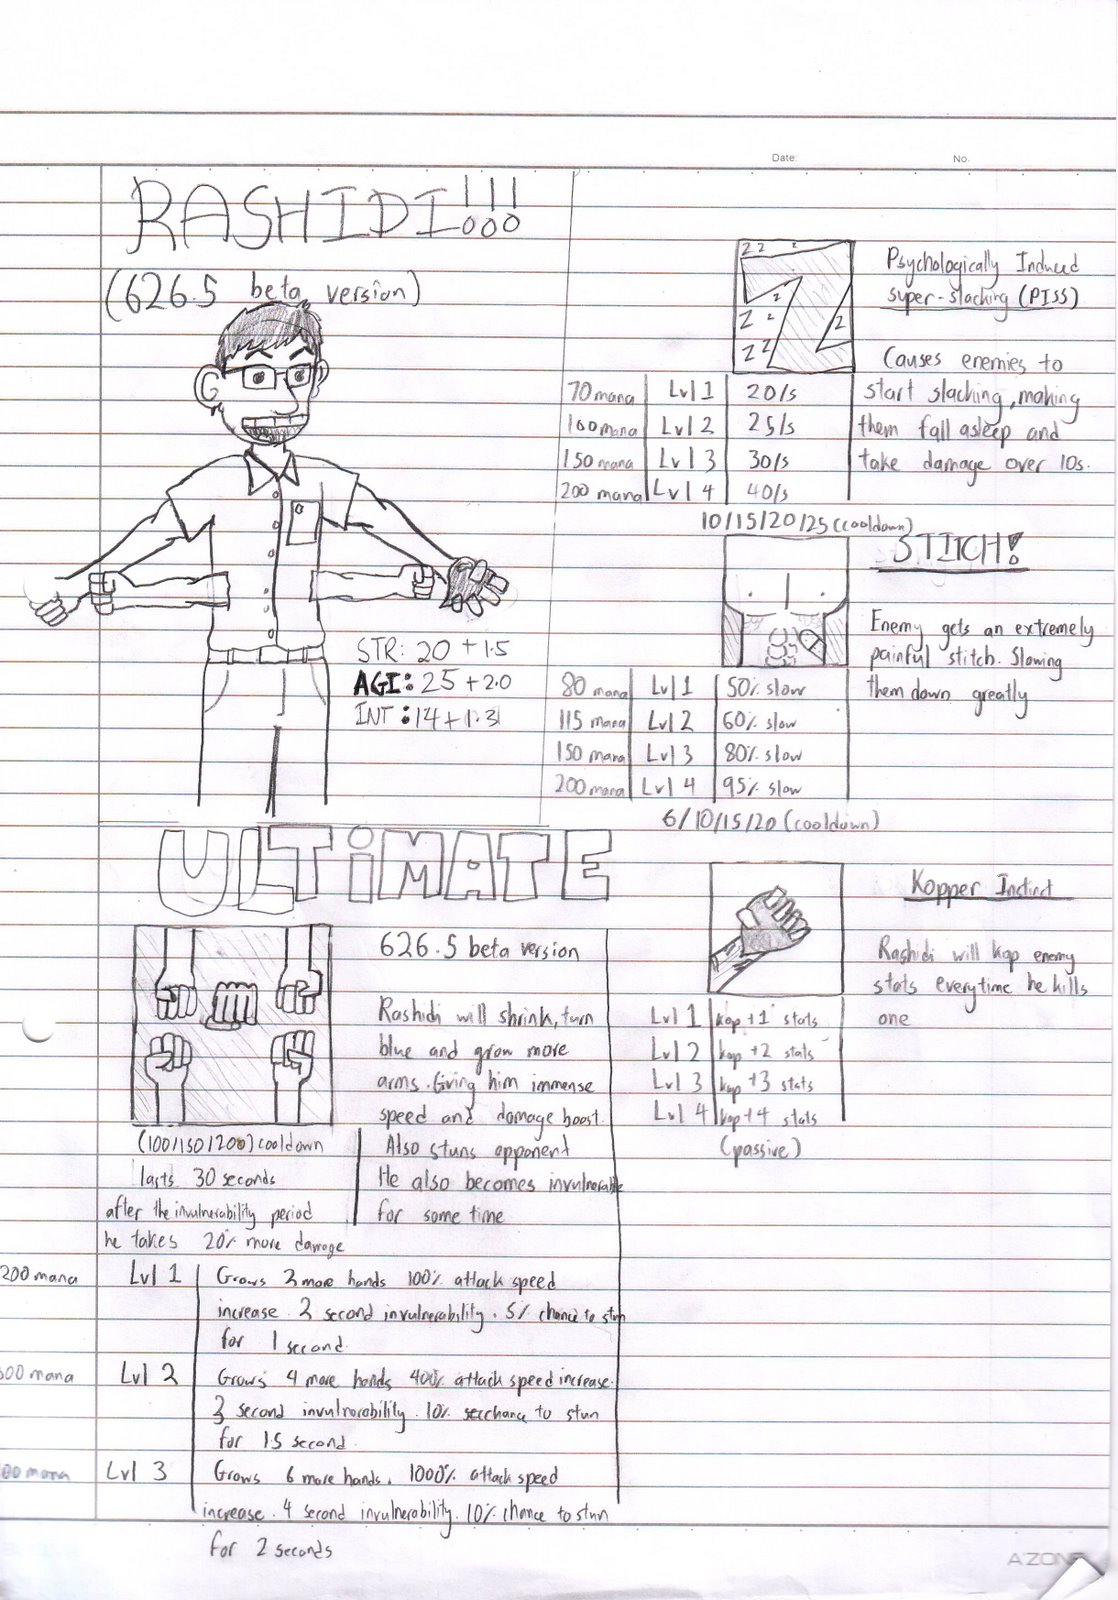 Date:
No.
RASHIDI!!!
(626.5 beta version)
STR: 20 + 1.5
AGI: 25 + 2.0
INT: 14 + 1.3
Z z z
z
Z z
z
Z Z
Psychologically Induced
super-slacking (PISS)
Causes enemies to
start slacking, making
them fall asleep and
take damage over 10s.
70 mana Lvl 1 20/s
100 mana Lvl 2 25/s
150 mana Lvl 3 30/s
200 mana Lvl 4 40/s
10/15/20/25 (cooldown)
STITCH!
Enemy gets an extremely
painful stitch. Slowing
them down greatly
80 mana Lvl 1 50% slow
115 mana Lvl 2 60% slow
150 mana Lvl 3 80% slow
200 mana Lvl 4 95% slow
6/10/15/20 (cooldown)
Kopper Instinct
Rashidi will kop enemy
stats everytime he kills
one
Lvl 1 kop +1 stats
Lvl 2 kop +2 stats
Lvl 3 kop +3 stats
Lvl 4 kop +4 stats
(passive)
ULTiMATE
626.5 beta version
Rashidi will shrink, turn
blue and grow more
arms. Giving him immense
speed and damage boost.
Also stuns opponent
He also becomes invulnerable
for some time
(100/150/200) cooldown
lasts 30 seconds
after the invulnerability period
he takes 20% more damage
200 mana Lvl 1 Grows 2 more hands 100% attack speed
increase. 2 second invulnerability. 5% chance to stun
for 1 second.
00 mana Lvl 2 Grows 4 more hands 400% attack speed increase.
3 second invulnerability. 10% chance to stun
for 1.5 second.
00 mana Lvl 3 Grows 6 more hands. 1000% attack speed
increase. 4 second invulnerability. 10% chance to stun
for 2 seconds
A'ZONE